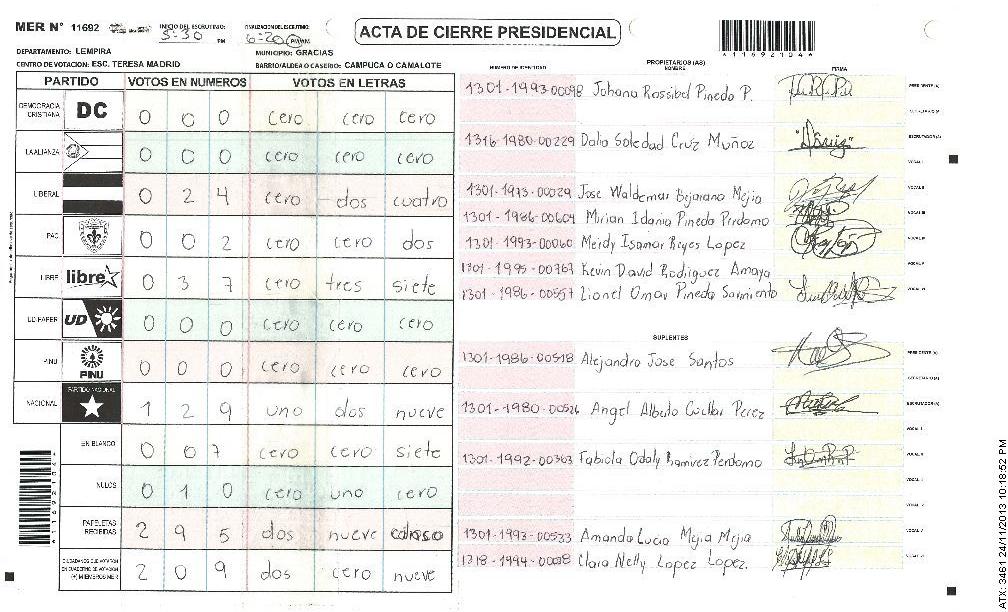 MER N° 11692
INICIO DEL ESCRUTINIO: 5:30 PM
FINALIZACION DEL ESCRUTINIO: 6:20 PM/AM
ACTA DE CIERRE PRESIDENCIAL
A116921044
DEPARTAMENTO: LEMPIRA
MUNICIPIO: GRACIAS
CENTRO DE VOTACION: ESC. TERESA MADRID
BARRIO/ALDEA O CASERIO: CAMPUCA O CAMALOTE
PARTIDO VOTOS EN NUMEROS VOTOS EN LETRAS
DEMOCRACIA CRISTIANA DC 0 0 0 cero cero cero
LA ALIANZA 0 0 0 cero cero cero
LIBERAL 0 2 4 cero dos cuatro
PAC 0 0 2 cero cero dos
LIBRE libre 0 3 7 cero tres siete
UD/FAPER UD 0 0 0 cero cero cero
PINU PINU 0 0 0 cero cero cero
NACIONAL PARTIDO NACIONAL 1 2 9 uno dos nueve
EN BLANCO 0 0 7 cero cero siete
NULOS 0 1 0 cero uno cero
PAPELETAS RECIBIDAS 2 9 5 dos nueve cinco
CIUDADANOS QUE VOTARON EN CUADERNO DE VOTACION (+) MIEMBROS MER 2 0 9 dos cero nueve
NUMERO DE IDENTIDAD PROPIETARIOS (AS) NOMBRE FIRMA
1301-1993-00098 Johana Rossibel Pineda P. PRESIDENTE (A)
SECRETARIO (A)
1316-1980-00229 Dalia Soledad Cruz Muñoz ESCRUTADOR (A)
VOCAL I
1301-1973-00029 Jose Waldemar Bejarano Mejia VOCAL II
1301-1986-00604 Mirian Idania Pineda Perdomo VOCAL III
1301-1993-00060 Meidy Isamar Reyes Lopez VOCAL IV
1301-1995-00767 Kevin David Rodriguez Amaya VOCAL V
1301-1986-00557 Lionel Omar Pineda Sarmiento VOCAL VI
SUPLENTES
1301-1986-00518 Alejandro Jose Santos PRESIDENTE (A)
SECRETARIO (A)
1301-1980-00526 Angel Alberto Cuellar Perez ESCRUTADOR (A)
VOCAL I
1301-1992-00363 Fabiola Odaly Ramirez Perdomo
1301-1993-00533 Amanda Lucia Mejia Mejia
1318-1994-00008 Clara Nelly Lopez Lopez.
A116921044
ATX: 3461 24/11/2013 10:18:52 PM